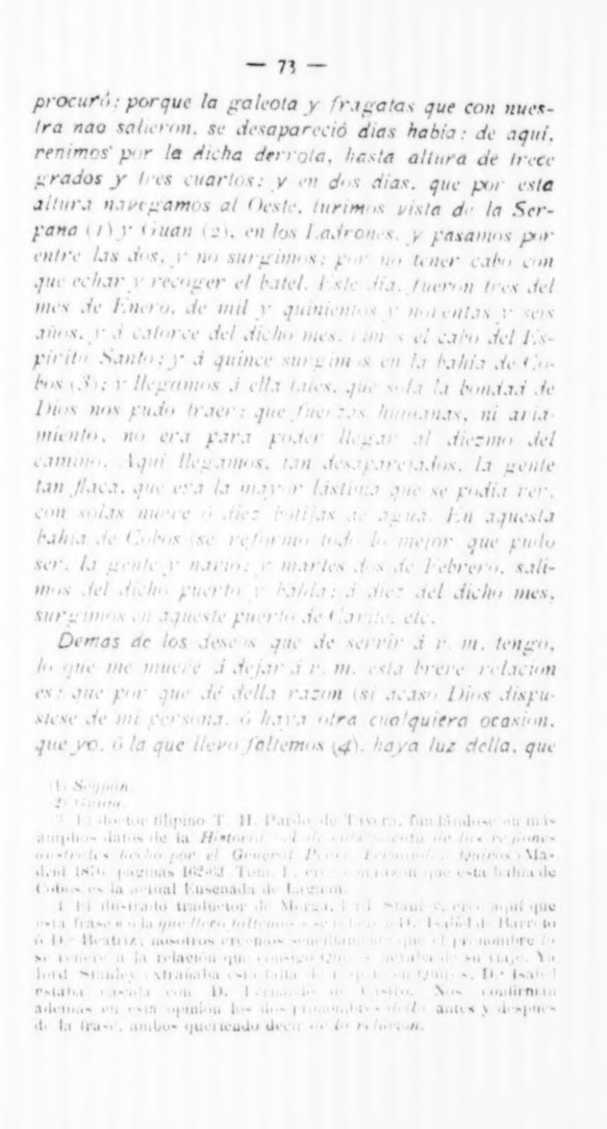 — 73 —
procuró; porque la galeota y fragatas que con nues-
tra nao salieron, se desapareció dias habia: de aqui,
venimos por la dicha derrota, hasta altura de trece
grados y tres cuartos; y en dos dias, que por esta
altura navegamos al Oeste, tuvimos vista de la Ser-
pana (1) y Guan (2), en los Ladrones, y pasamos por
entre las dos, y no surgimos; por no tener cabo con
que echar y recoger el batel. Este dia, fueron tres del
mes de Enero, de mil y quinientos y noventas y seis
años, y á catorce del dicho mes, vimos el cabo del Es-
pirito Santo; y á quince surgimos en la bahia de Co-
bos (3); y llegamos á ella tales, que sola la bondad de
Dios nos pudo traer; que fuerzas humanas, ni aria-
miento, no era para poder llegar al diezmo del
camino. Aqui llegamos, tan desaparejados, la gente
tan flaca, que era la mayor lástima que se podia ver,
con solas nueve ó diez botijas de agua. En aquesta
bahia de Cobos se reformó todo lo mejor que pudo
ser, la gente y navio; y martes dos de Febrero, sali-
mos del dicho puerto y bahia; á diez del dicho mes,
surgimos en aqueste puerto de Cavite, etc.
Demas de los deseos que de servir á v. m. tengo,
lo que me mueve á dejar á v. m. esta breve relacion
es: que por que dé della razon (si acaso Dios dispu-
siese de mi persona, ó haya otra cualquiera ocasion,
que yo, ó la que llevo faltemos (4), haya luz della, que
(1) Seypan.
(2)
El doctor filipino T. H. Pardo de Tavera, fundándose en más
amplios datos de la Historia del descubrimiento de las regiones
austriales hecho por el General Pedro Fernandez Quiros (Ma-
drid 1876, páginas Tom. I, cree con razon que esta bahia de
Cobos es la actual Ensenada de
4 El ilustrado traductor de Morga, Lord Stanley, cree aqui que
esta frase ó la que llevo faltemos se refiere á D.ª Isabel de Barreto
ó D.ª Beatriz; nosotros creemos sencillamente que el pronombre la
se refiere á la relación que consigo Quiros llevaba de su viaje. Ya
lord Stanley extrañaba esta falta de respeto en Quiros, D.ª Isabel
estaba casada con D. Fernando de Castro. Nos confirman
ademas en esta opinion los dos pronombres della antes y despues
de la frase, ambos queriendo decir de la relacion.